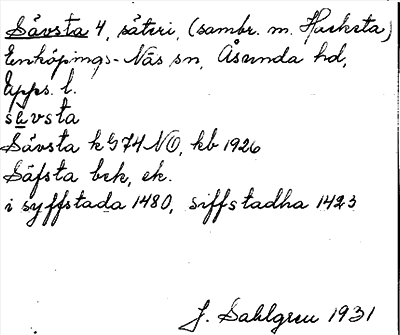 Sävsta 4, säteri, (sambr. m. Hacksta)
Enköpings-Näs sn, Åsunda hd,
Upps. l.
sävsta
Sävsta k G 74 NO, kb 1926
Säfsta bek, ek.
i syffstada 1480, siffstadha 1423
J. Sahlgren 1931